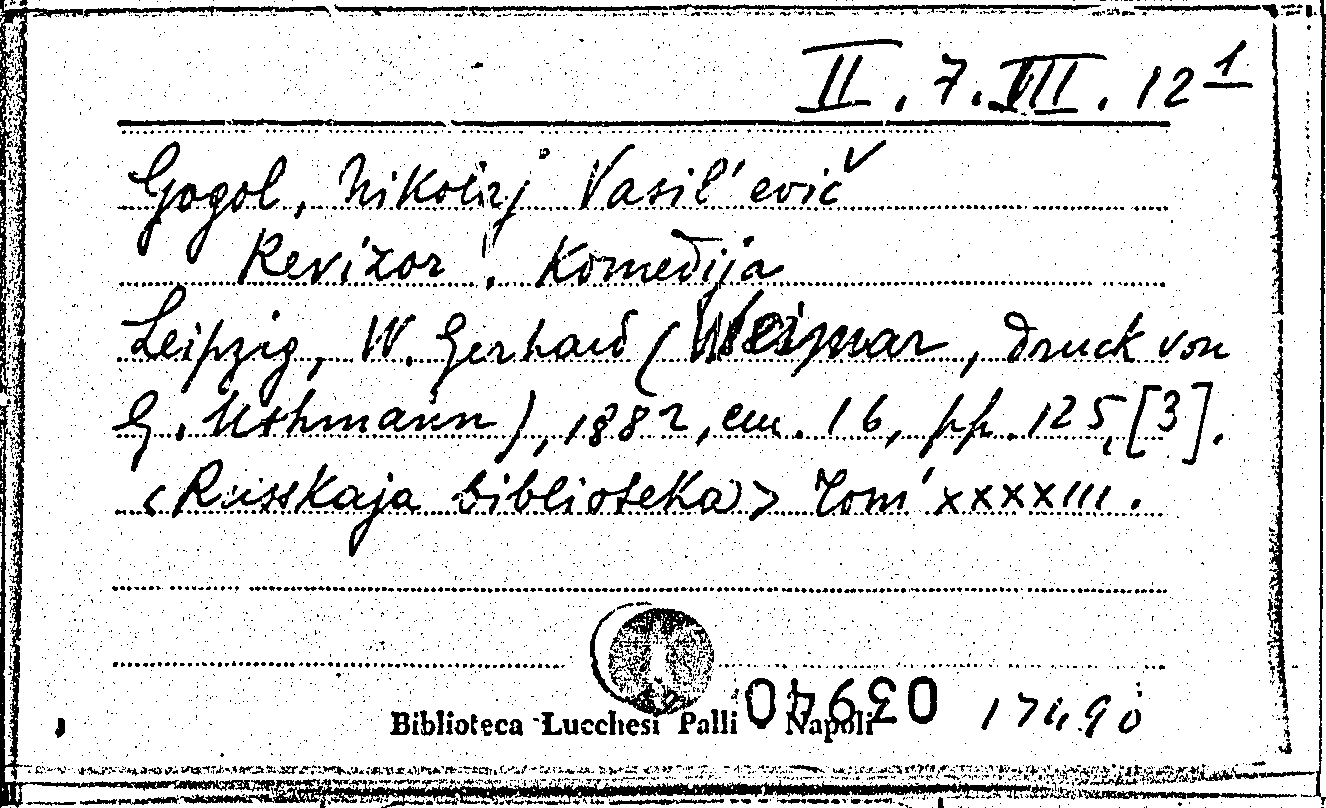 II. 7. VII. 12 1
Gogol, Nikolaj Vasil'evič
Revizor. Komedija
Leipzig, W. Gerhard (Weimar, druck von
G. Uschmann), 1882, cm. 16, pp. 125, [3].
<Russkaja biblioteka> Tom' XXXXIII.
Biblioteca Lucchesi Palli Napoli